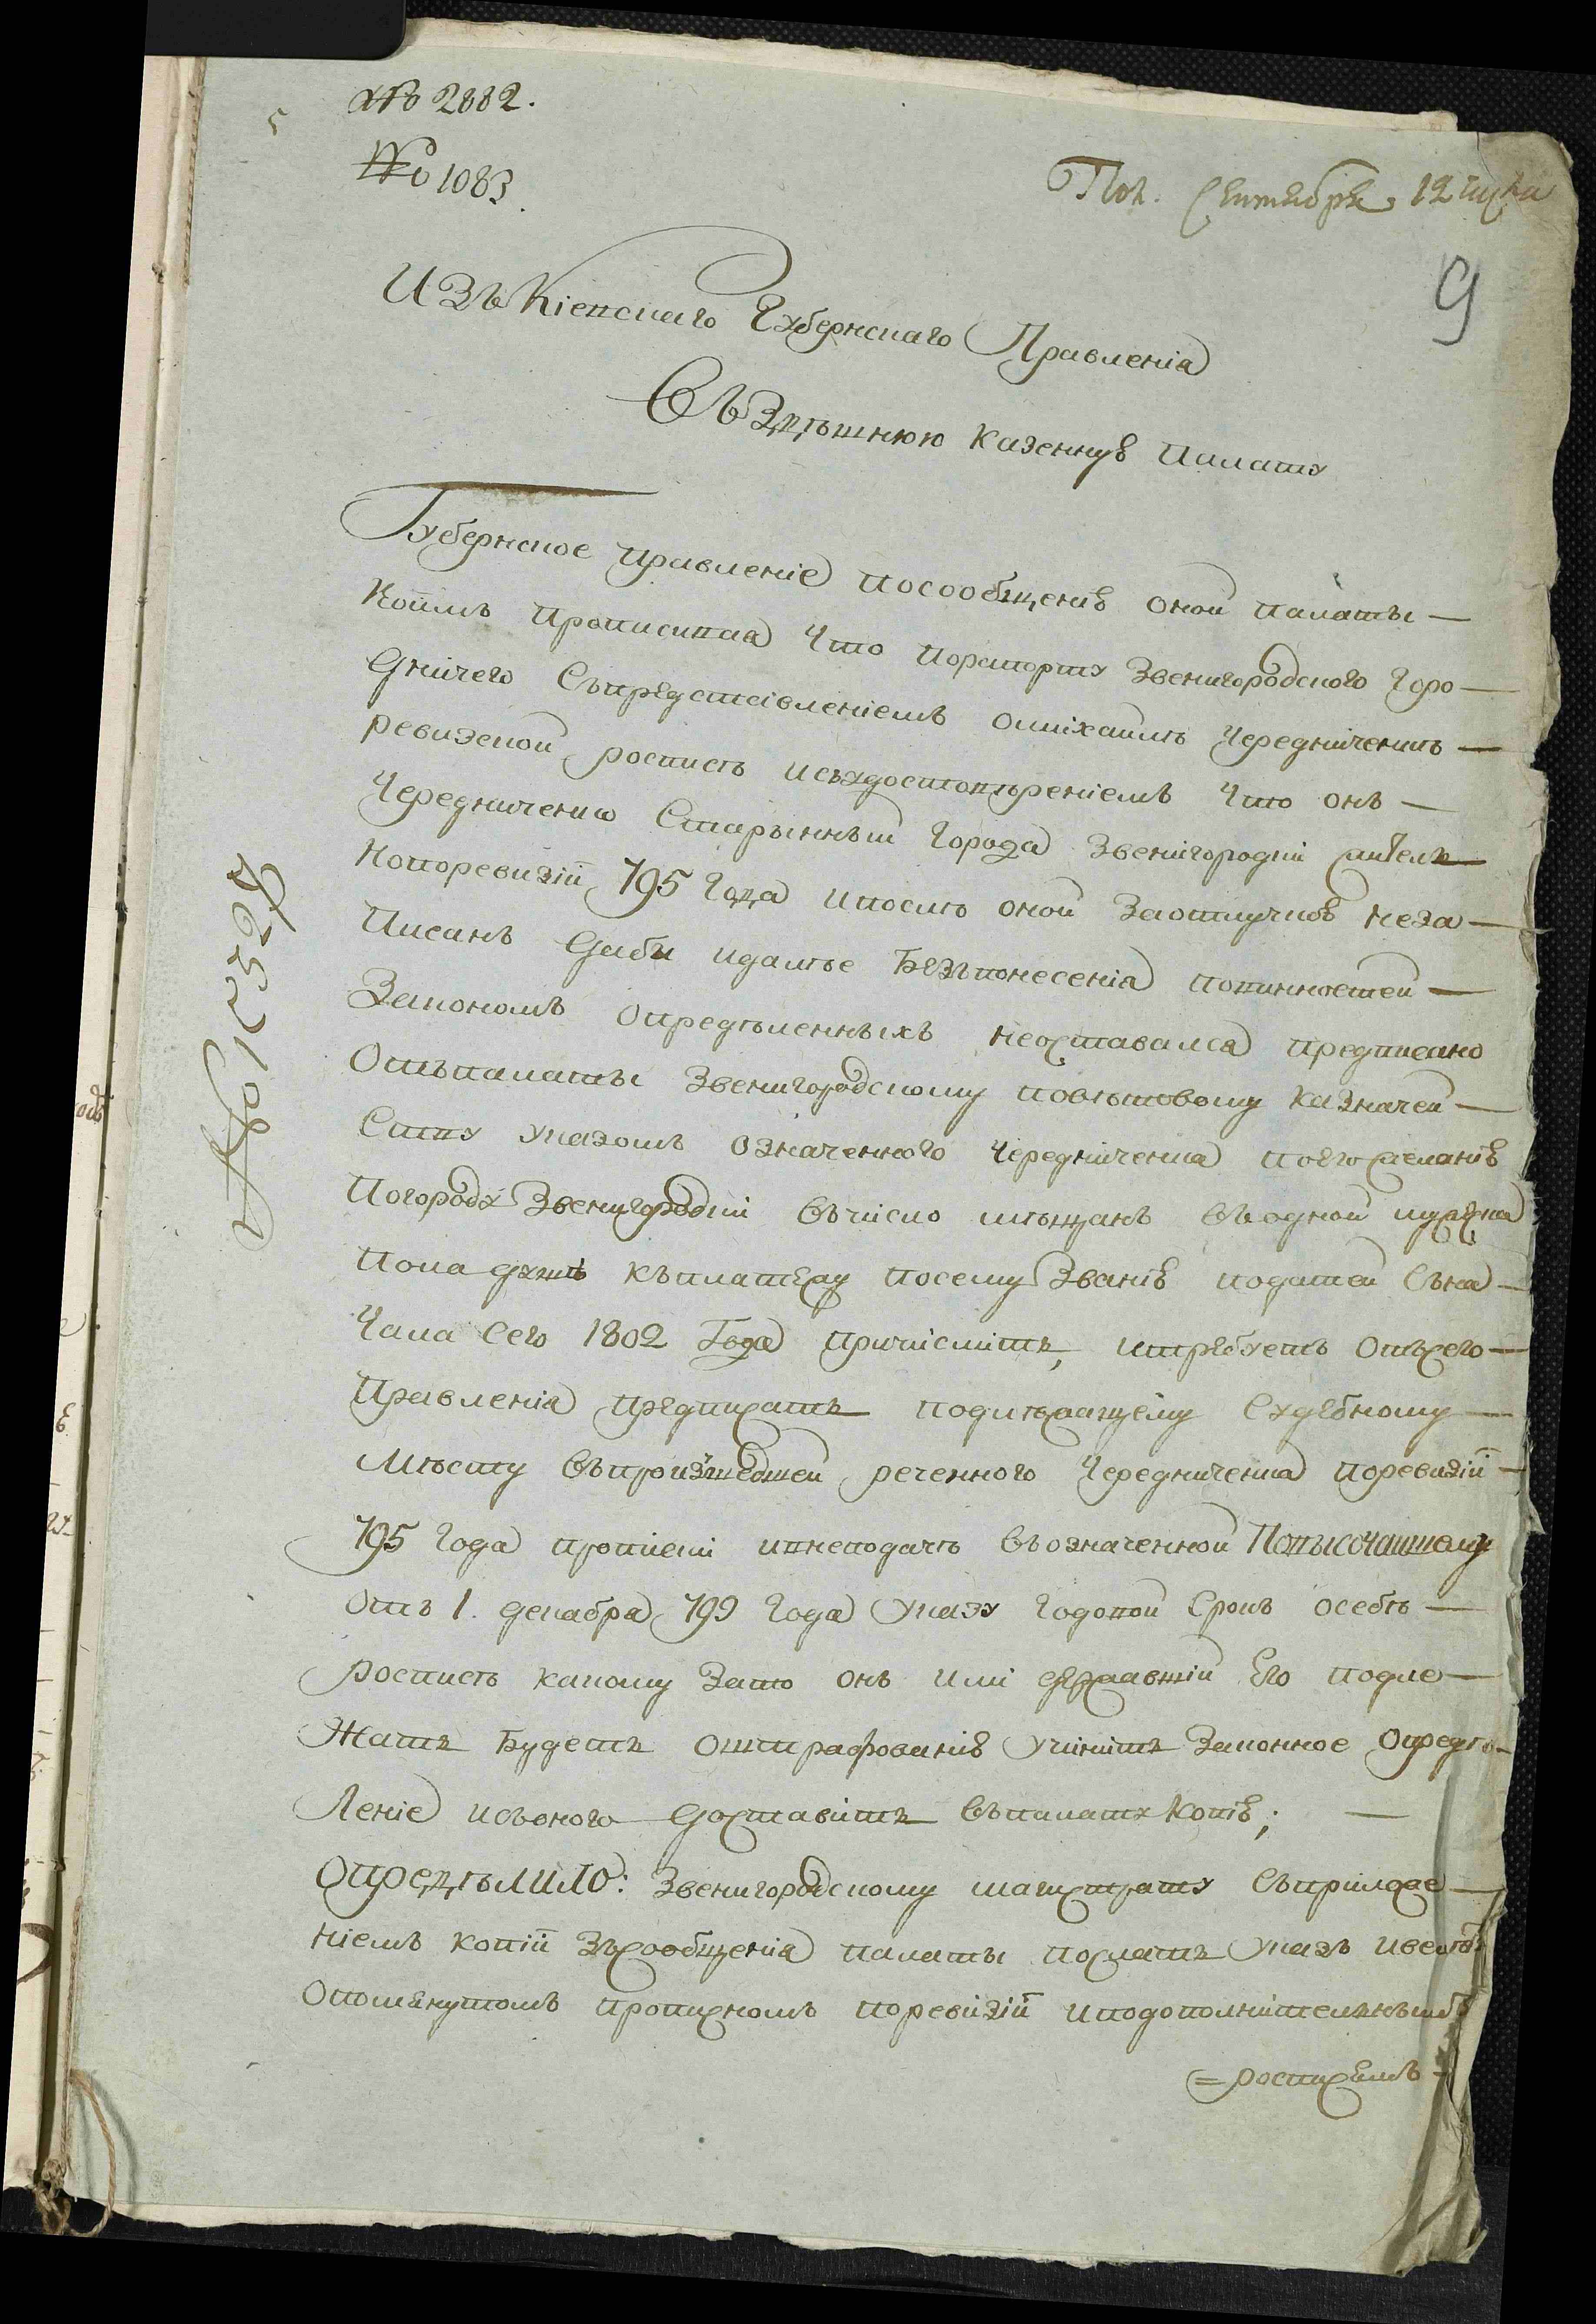 № 2882.
№ 1083.
Пол. Сентября 12 числа
9
Изъ Кіевскаго Губернскаго Правленія
Въ Здѣшнюю казенную Палату
Губернское правленіе посообщенію оной палаты —
Коимъ прописывая что порапорту Звенигородского Горо —
дничего Съпредставленіемъ омихайлѣ Чередниченкѣ —
ревизской росписѣ исъудостовѣреніемъ что онъ —
Чередниченко Старынный города Звенигородки житель
Нопоревизіи 795 Года ипослѣ оной Заотлучкою неза —
Писанъ дабы идалѣе Безъпонесенія повинностей —
Закономъ опредѣленныхъ неоставался предписано
Отъпалаты Звенигородскому повѣтовому казначей —
Ству указомъ означенного Чередниченка поего желанію
Погороду Звенигородки въчисло мѣщанъ въодной мужеска
Пола душѣ къплатежу посему Званію податей Съна —
Чала Сего 1802 Года причислить, итребуетъ Отъсего —
Правленія предписать подлежащему Судебному —
Мѣсту въпроизшедшей реченного Чередниченка поревизіи —
795 Года прописки ивнеподачѣ въозначенной Повысочайшему
отъ 1. декабря 799 Года Указу годовой Срокъ осебѣ —
росписѣ какому Зато онъ или державшій Его подле —
Жать Будетъ оштрафованію учинить Законное Опредѣ —
Леніе исъоного доставить въпалату Копію; —
Опредѣлило: Звенигородскому магистрату Съприложе —
ніемъ копіи Зъсообщенія палаты послать Указъ ивелѣть
Опомянутомъ прописномъ поревизіи иподополнительнымъ
= росписямъ =
№ 1532